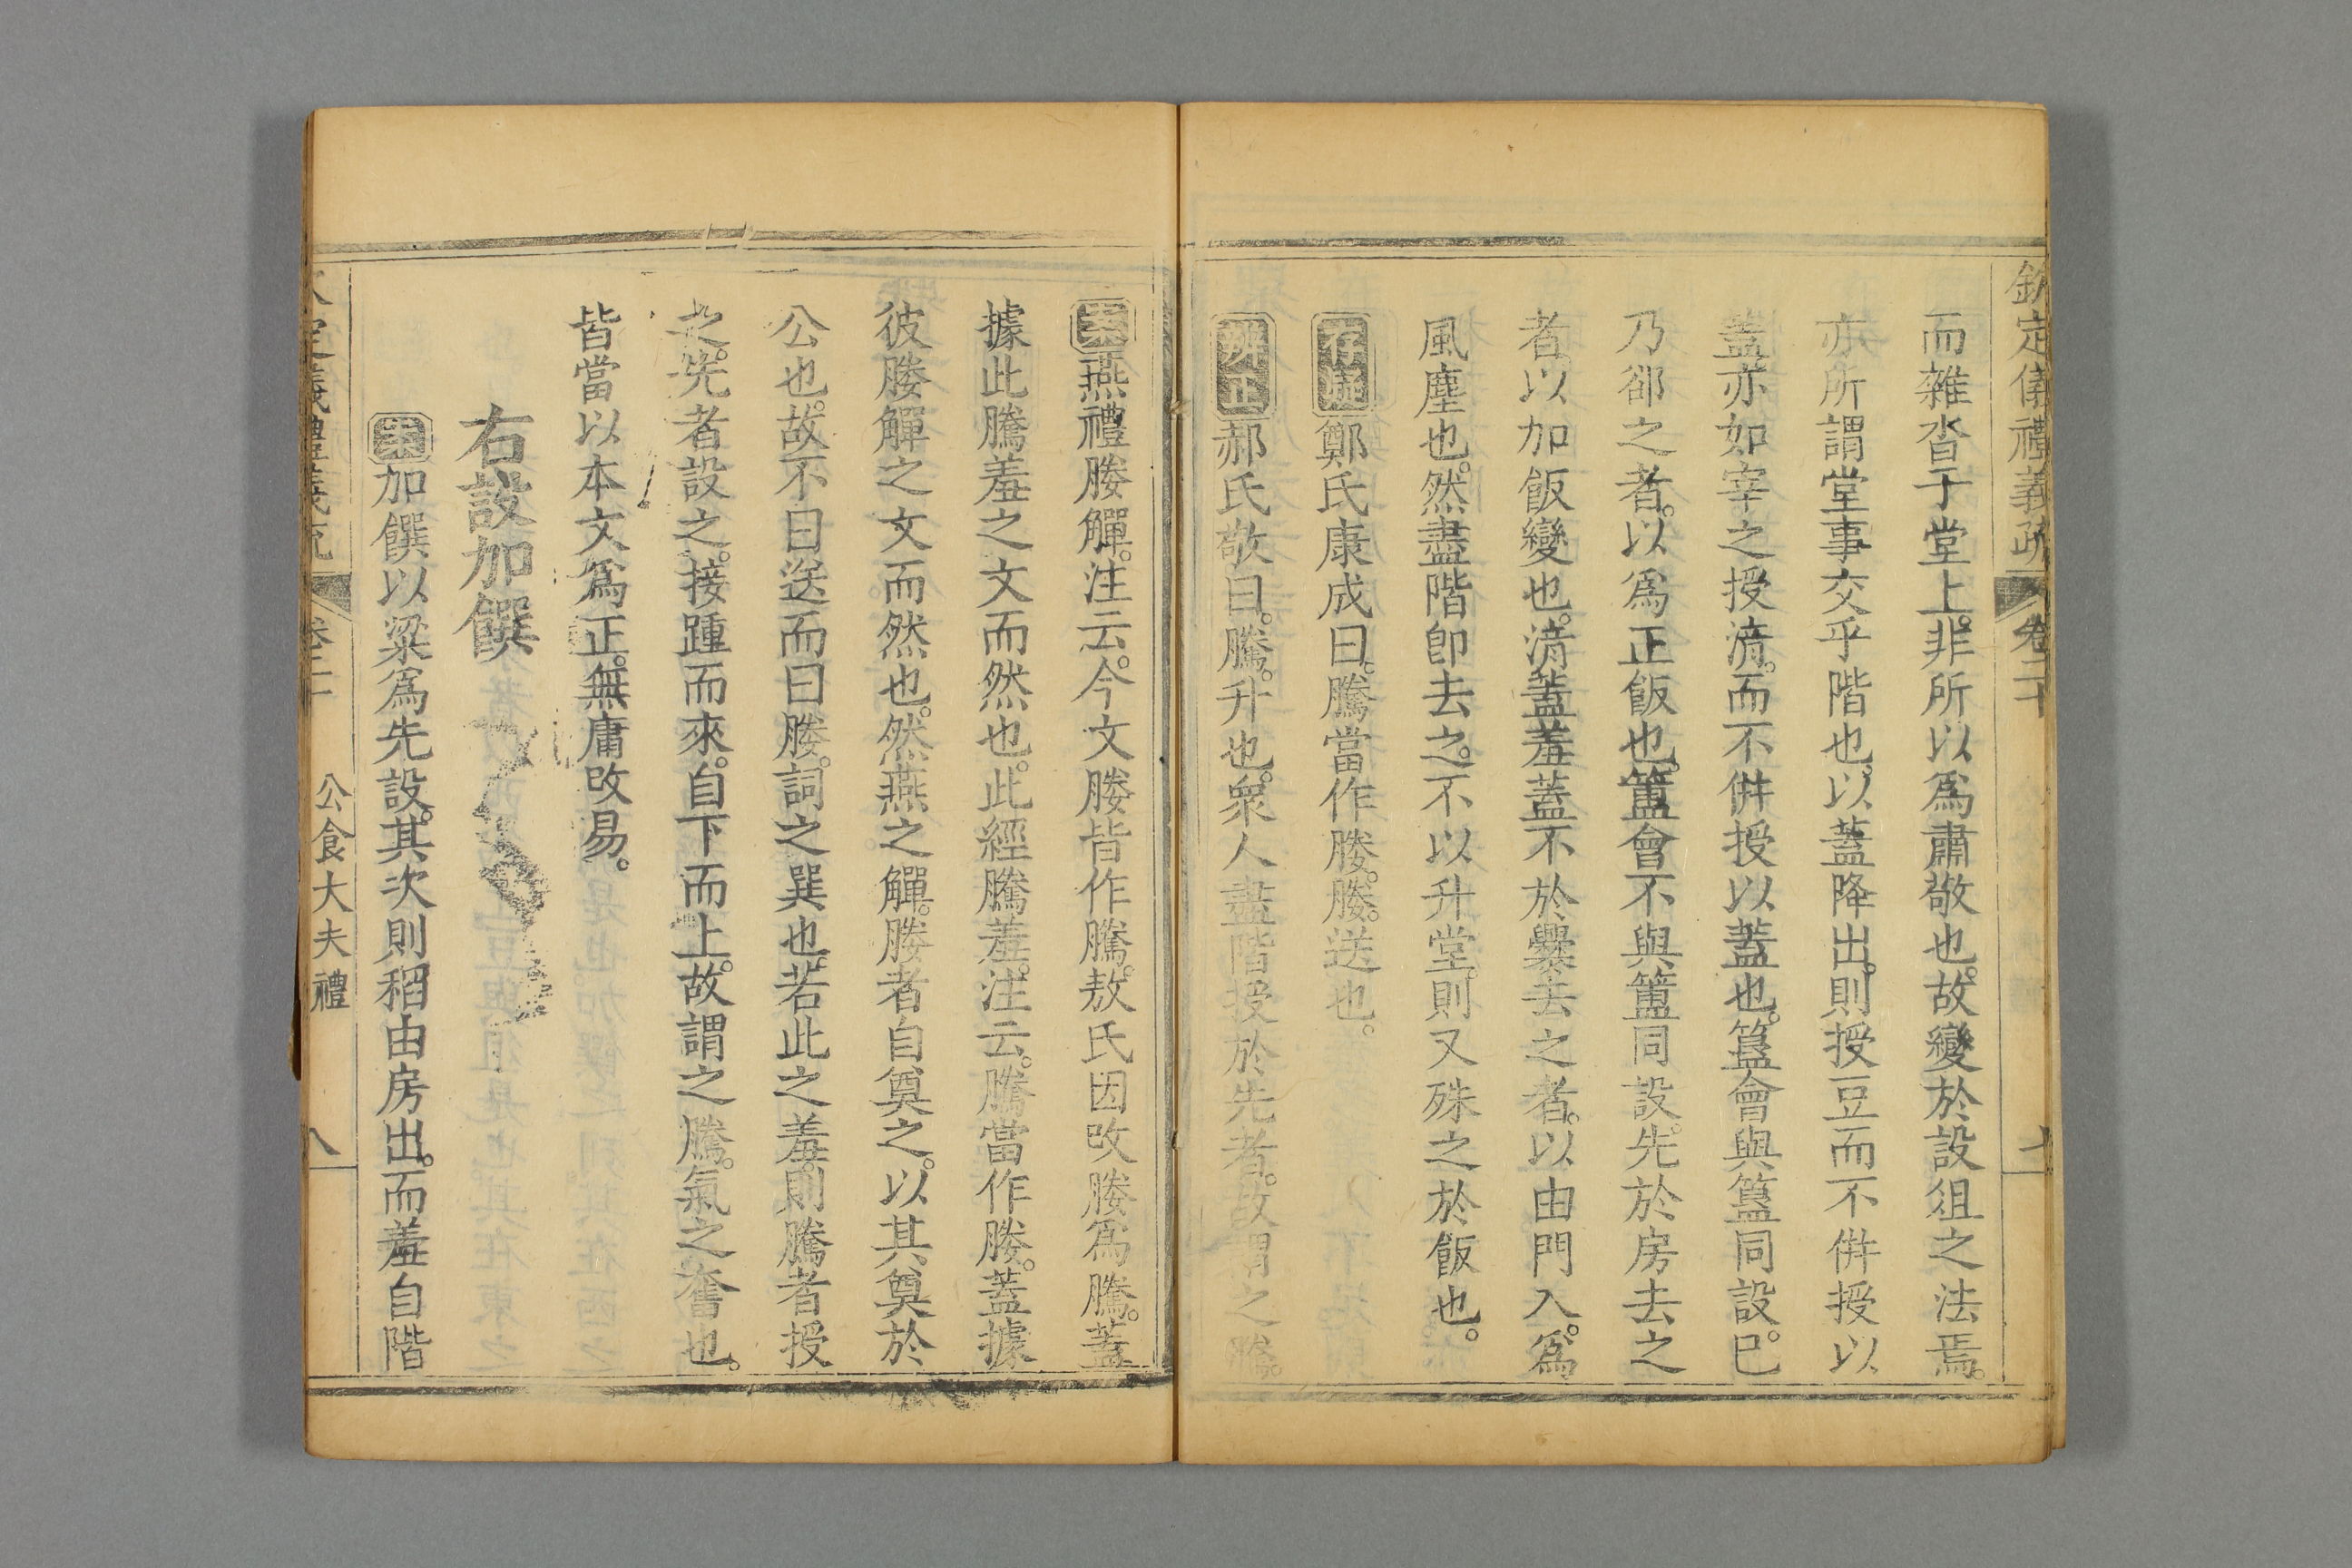 欽定儀禮義疏 卷二十 七
而雜沓于堂上。非所以爲肅敬也。故變於設俎之法焉。
亦所謂堂事交乎階也。以蓋降出。則授豆而不倂授以
蓋。亦如宰之授湆。而不倂授以蓋也。簋會與簋同設。已
乃郤之者。以爲正飯也。簠會不與簠同設。先於房去之
者。以加飯變也。湆蓋羞蓋不於爨去之者。以由門入。爲
風塵也。然盡階卽去之。不以升堂。則又殊之於飯也。
存疑鄭氏康成曰。騰當作媵。媵。送也。
辨正郝氏敬曰。騰。升也。衆人盡階授於先者。故謂之騰。
案燕禮媵觶。注云。今文媵皆作騰。敖氏因改媵爲騰。蓋
據此騰羞之文而然也。此經騰羞。注云。騰當作媵。蓋據
彼媵觶之文而然也。然燕之觶。媵者自奠之。以其奠於
公也。故不曰送而曰媵。詞之巽也。若此之羞。則騰者授
之。先者設之。接踵而來。自下而上。故謂之騰。氣之奮也。
皆當以本文爲正。無庸改易。
右設加饌
案加饌以粱爲先設。其次則稻由房出。而羞自階
欽定儀禮義疏 卷二十 公食大夫禮 八